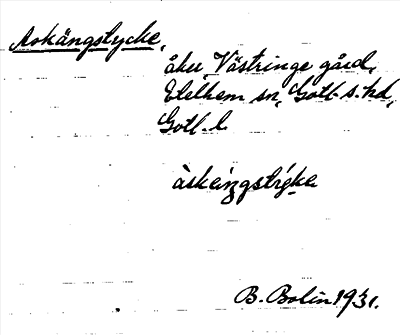 Askängstycke,
åker, Västringe gård,
Etelhem sn, Gotl. s. hd,
Gotl. l.
àskèi̯ŋgstýke
B. Bolin 1931.